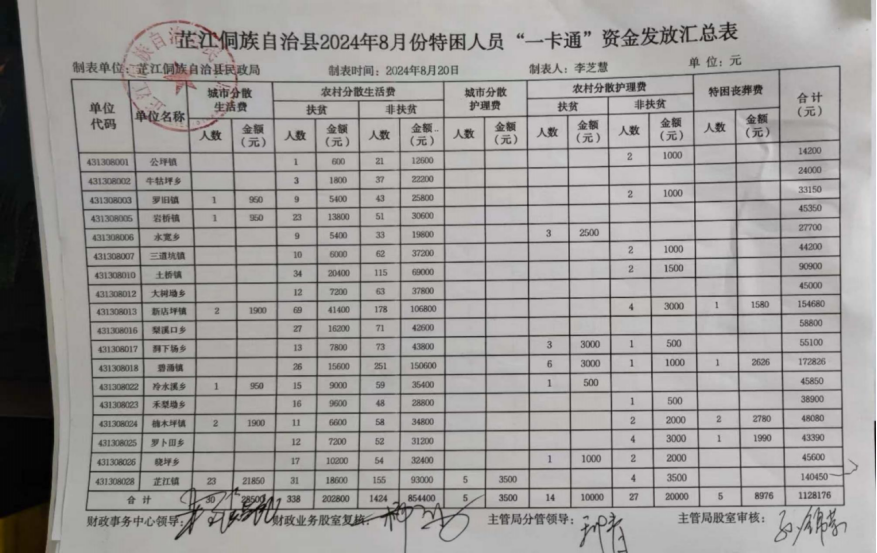 芷江侗族自治县2024年8月份特困人员“一卡通”资金发放汇总表
制表单位：芷江侗族自治县民政局 制表时间：2024年8月20日 制表人：李芝慧 单位：元
单位代码 单位名称 城市分散生活费 农村分散生活费 城市分散护理费 农村分散护理费 特困丧葬费 合计（元）
扶贫 非扶贫 扶贫 非扶贫
人数 金额（元） 人数 金额（元） 人数 金额（元） 人数 金额（元） 人数 金额（元） 人数 金额（元） 人数 金额（元）
431308001 公坪镇 1 600 21 12600 2 1000 14200
431308002 牛牯坪乡 3 1800 37 22200 24000
431308003 罗旧镇 1 950 9 5400 43 25800 2 1000 33150
431308005 岩桥镇 1 950 23 13800 51 30600 45350
431308006 水宽乡 9 5400 33 19800 3 2500 27700
431308007 三道坑镇 10 6000 62 37200 2 1000 44200
431308010 土桥镇 34 20400 115 69000 2 1500 90900
431308012 大树坳乡 12 7200 63 37800 45000
431308013 新店坪镇 2 1900 69 41400 178 106800 4 3000 1 1580 154680
431308016 梨溪口乡 27 16200 71 42600 58800
431308017 洞下场乡 13 7800 73 43800 3 3000 1 500 55100
431308018 碧涌镇 26 15600 251 150600 6 3000 1 1000 1 2626 172826
431308022 冷水溪乡 1 950 15 9000 59 35400 1 500 45850
431308023 禾梨坳乡 16 9600 48 28800 1 500 38900
431308024 楠木坪镇 2 1900 11 6600 58 34800 2 2000 2 2780 48080
431308025 罗卜田乡 12 7200 52 31200 4 3000 1 1990 43390
431308026 晓坪乡 17 10200 54 32400 1 1000 2 2000 45600
431308028 芷江镇 23 21850 31 18600 155 93000 5 3500 4 3500 140450
合计 30 28500 338 202800 1424 854400 5 3500 14 10000 27 20000 5 8976 1128176
财政事务中心领导： 财政业务股室复核： 主管局分管领导： 主管局股室审核：